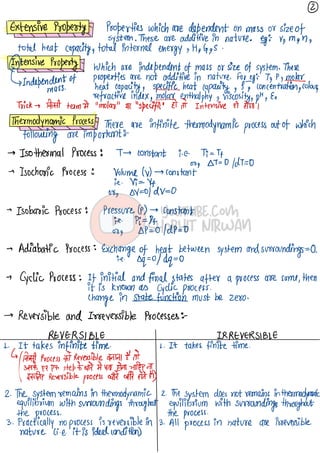 ②
Extensive Property: Properties which are dependent on mass or size of
system. These are additive in nature. eg: V, m, n,
total heat capacity, total Internal energy, H, G, S.
Intensive Property: Which are Independent of mass or size of system. These
↳ Independent of mass. properties are not additive in nature. For eg: T, P, molar
heat capacity, specific heat capacity, concentration, colour,
refractive index, molar enthalphy, viscosity, pH, E₀
Trick → जिसमें term में "molar" या "specific" हो तो Intensive
Thermodynamic Process: There are infinite thermodynamic process out of which
following are important:-
→ Isothermal Process: T → constant i.e. Tᵢ = Tf
or, ΔT=0/dT=0
→ Isochoric Process: Volume (V) → constant
i.e. Vᵢ = Vf
or, ΔV=0/dV=0
→ Isobaric Process: Pressure (P) → constant
i.e. Pᵢ = Pf
or, ΔP=0/dP=0
→ Adiabatic Process: Exchange of heat between system and surroundings=0.
i.e. Δq=0/dq=0
→ Cyclic Process: If initial and final states after a process are same, then
it is known as Cyclic process.
Change in state function must be zero.
→ Reversible and Irreversible Processes:-
REVERSIBLE
1. It takes infinite time.
किसी Process को Reversible बनाना है तो
2. The system remains in thermodynamic
equilibrium with surroundings throughout
the process.
3. Practically no process is reversible in
nature (i.e it is Ideal condition)
IRREVERSIBLE
1. It takes finite time.
2. The system does not remains in thermodynamic
equilibrium with surroundings throughout
the process.
3. All process in nature are irreversible
NIRWAN